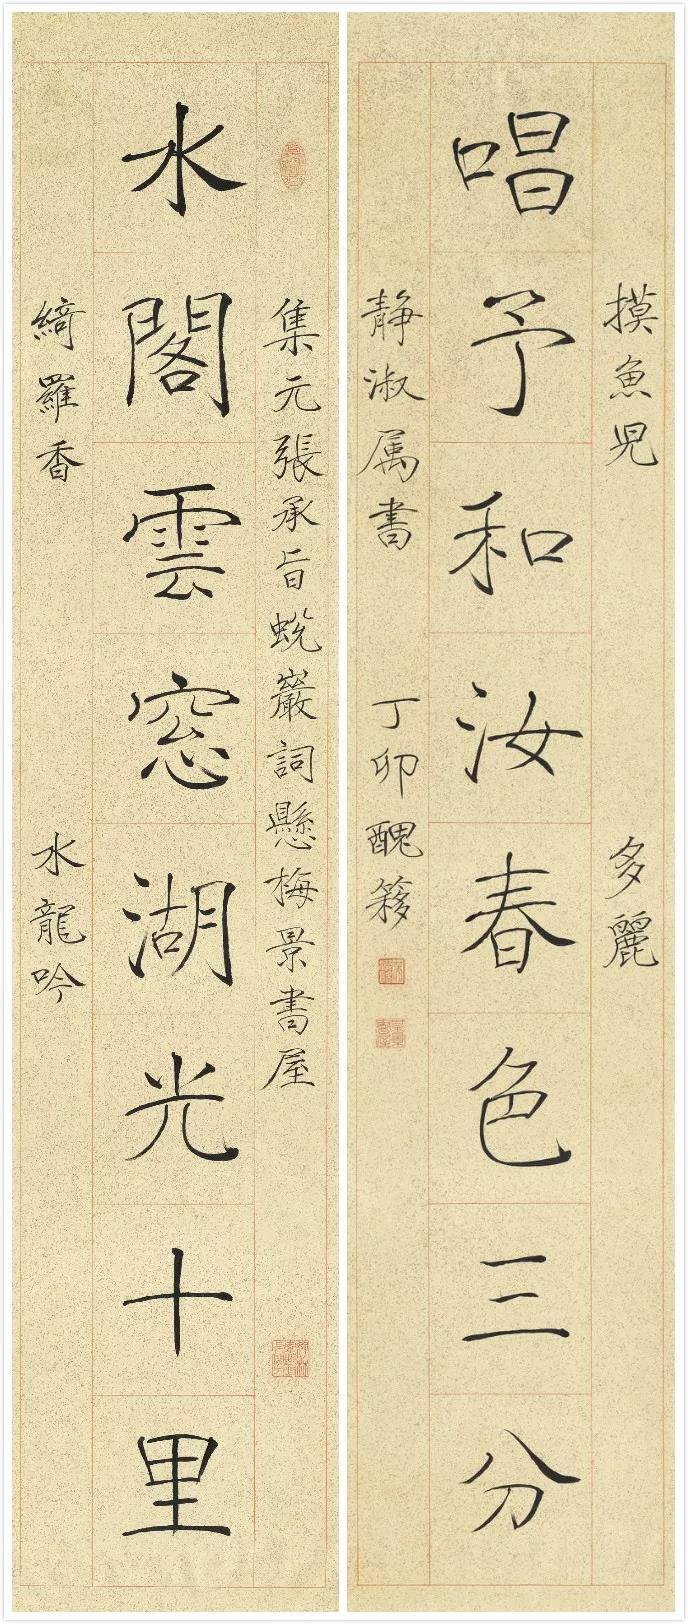 摸魚児
多麗
唱予和汝春色三分
静淑属書
丁卯醜簃
集元張承旨蛻巖詞懸梅景書屋
水閣雲窓湖光十里
綺羅香
水龍吟